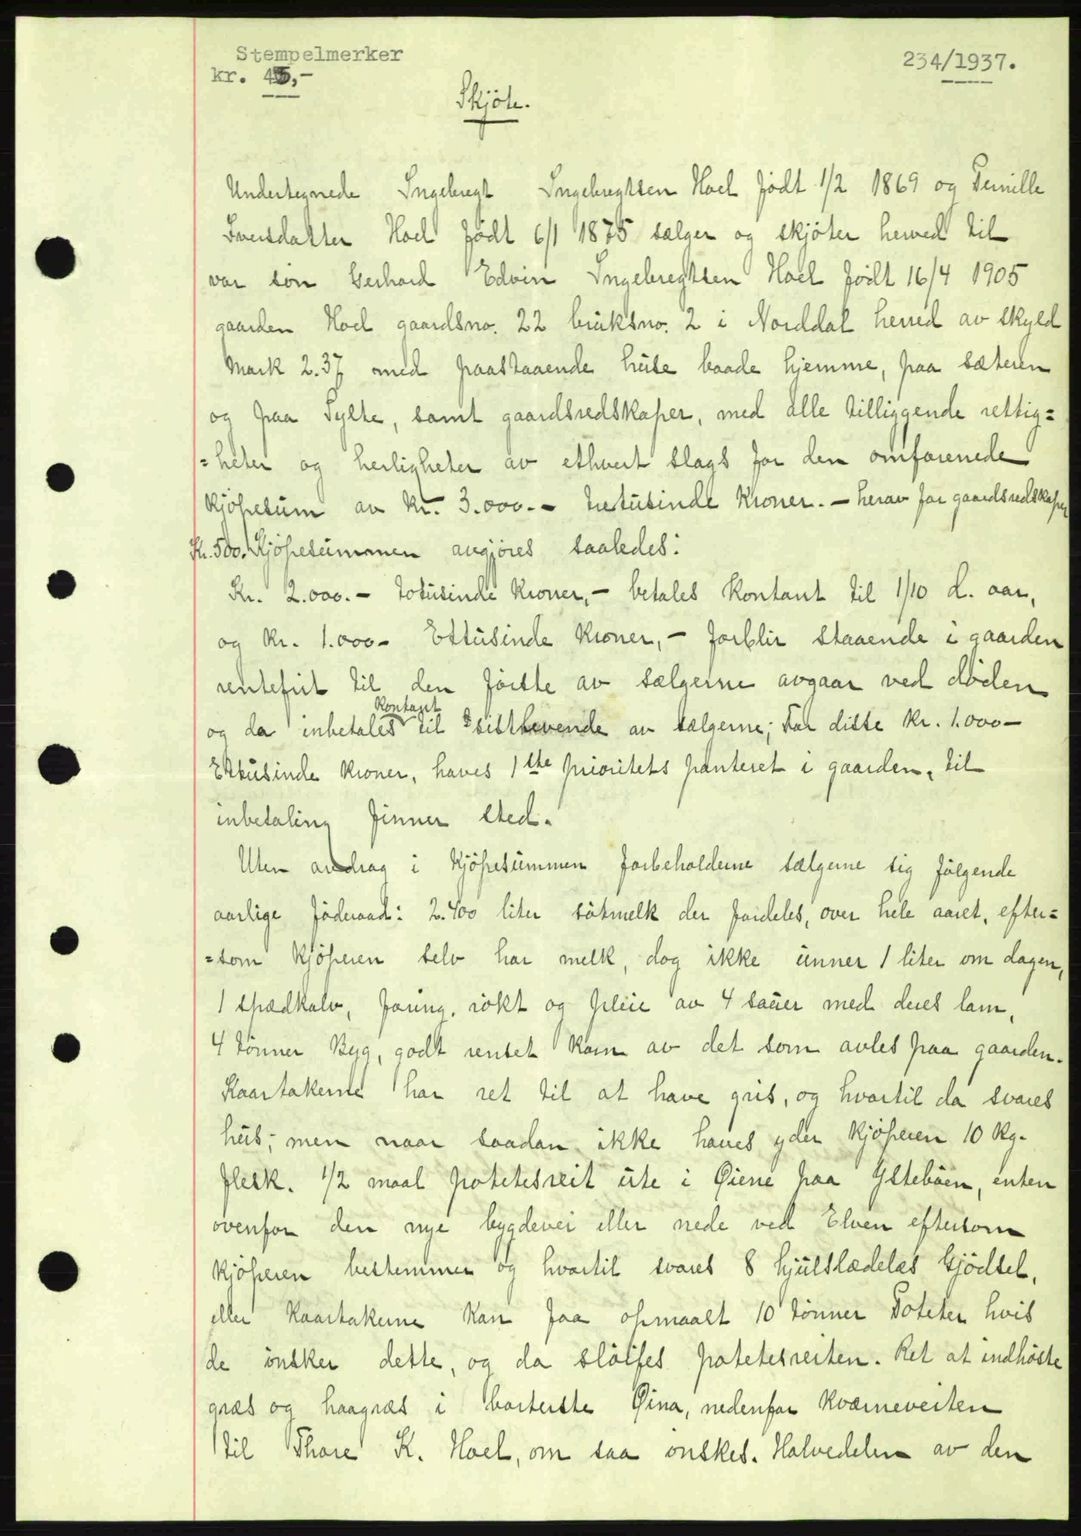 Stempelmerker
kr. 45,-
234/1937.
Skjöte.
Undertegnede Ingebregt Ingebregtsen Hoel födt 1/2 1869 og Pernille
Iversdatter Hoel födt 6/1 1875 sælger og skjöter herved til
vor sön Gerhard Edvin Ingebregtsen Hoel födt 16/4 1905
gaarden Hoel gaardsno. 22 bruksno. 2 i Norddal herred av skyld
Mark 2.37 med paastaaende huse baade hjemme, paa sæteren
og paa Sylte, samt gaardsredskaper, med alle tilliggende rettig=
=heter og herligheter av ethvert slags for den omforenede
kjöpesum av kr. 3.000.- tretusinde Kroner. - herav for gaardsredskaper
Kr. 500. Kjöpesummen avgjöres saaledes:
Kr. 2.000.- totusinde kroner,- betales kontant til 1/10 d. aar,
og kr. 1.000- Ettusinde kroner,- forblir staaende i gaarden
rentefrit til den förste av sælgerne avgaar ved döden
og da inbetales kontant til sistlevende av sælgerne; For disse kr. 1.000-
Ettusinde kroner, haves 1ste prioritets panteret i gaarden, til
inbetaling finner sted.
Uten avdrag i kjöpesummen forbeholderne sælgerne sig fölgende
aarlige föderaad: 2.400 liter sötmelk der fordeles, over hele aaret, efter=
=som kjöperen selv har melk, dog ikke unner 1 liter om dagen,
1 spædkalv, foring, rökt og pleie av 4 sauer med deres lam,
4 tönner Byg, godt renset korn av det som avles paa gaarden.
Kaartakerne har ret til at have gris, og hvortil da svares
hus; men naar saadan ikke haves yder kjöperen 10 kg.
flesk. 1/2 maal potetesreit ute i Øiene paa Ysteböen, enten
ovenfor den nye bygdevei eller nede ved Elven eftersom
kjöperen bestemmer og hvortil svares 8 hjulslædelas Gjödsel,
eller Kaartakerne kan faa opmaalt 10 tönner Poteter hvis
de önsker dette, og da slöifes potetesreiten. Ret at indhöste
græs og haagræs i borterste Øina, nedenfor kværneveiten
til Thore K. Hoel, om saa önskes. Halvedelen av den